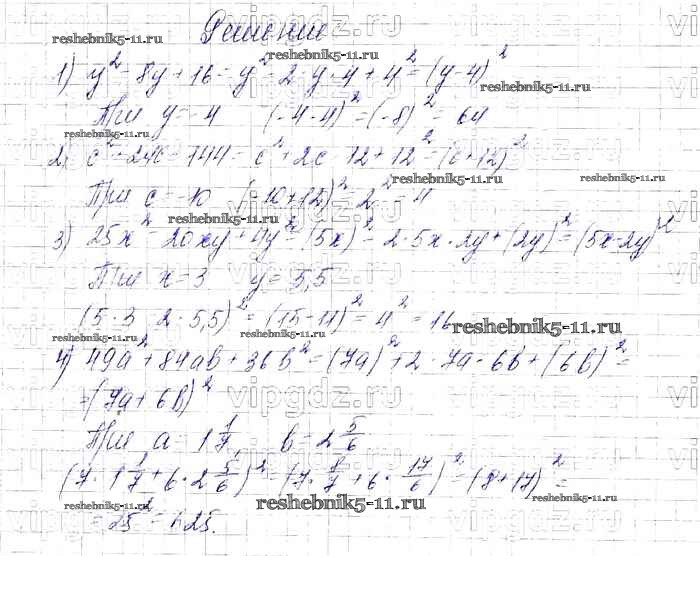 Решение
1) y² - 8y + 16 = y² - 2·y·4 + 4² = (y-4)²
При y = -4 (-4-4)² = (-8)² = 64
2) c² + 24c + 144 = c² + 2c·12 + 12² = (c+12)²
При c = -10 (-10+12)² = 2² = 4
3) 25x² - 20xy + 4y² = (5x)² - 2·5x·2y + (2y)² = (5x-2y)²
При x = 3 y = 5,5
(5·3 - 2·5,5)² = (15-11)² = 4² = 16
4) 49a² + 84ab + 36b² = (7a)² + 2·7a·6b + (6b)² =
= (7a + 6b)²
При a = 1 1/7, b = 2 5/6
(7·1 1/7 + 6·2 5/6)² = (7·8/7 + 6·17/6)² = (8+17)² =
= 25² = 625.
reshebnik5-11.ru
vipgdz.ru